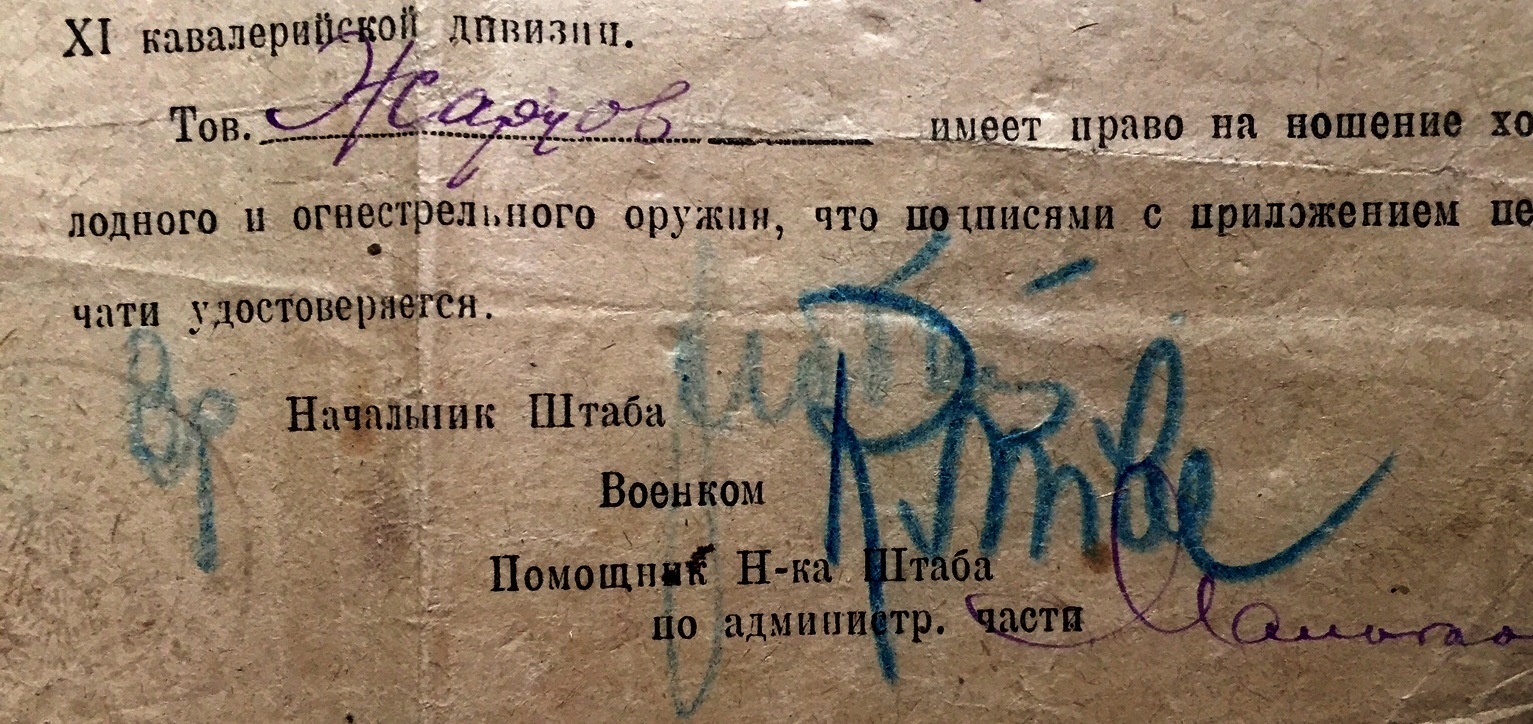 XI кавалерийской дивизии.
Тов. Жарцов имеет право на ношение хо
лодного и огнестрельного оружия, что подписями с приложением пе
чати удостоверяется.
Вр Начальник Штаба
Военком
Помощник Н-ка Штаба
по администр. части